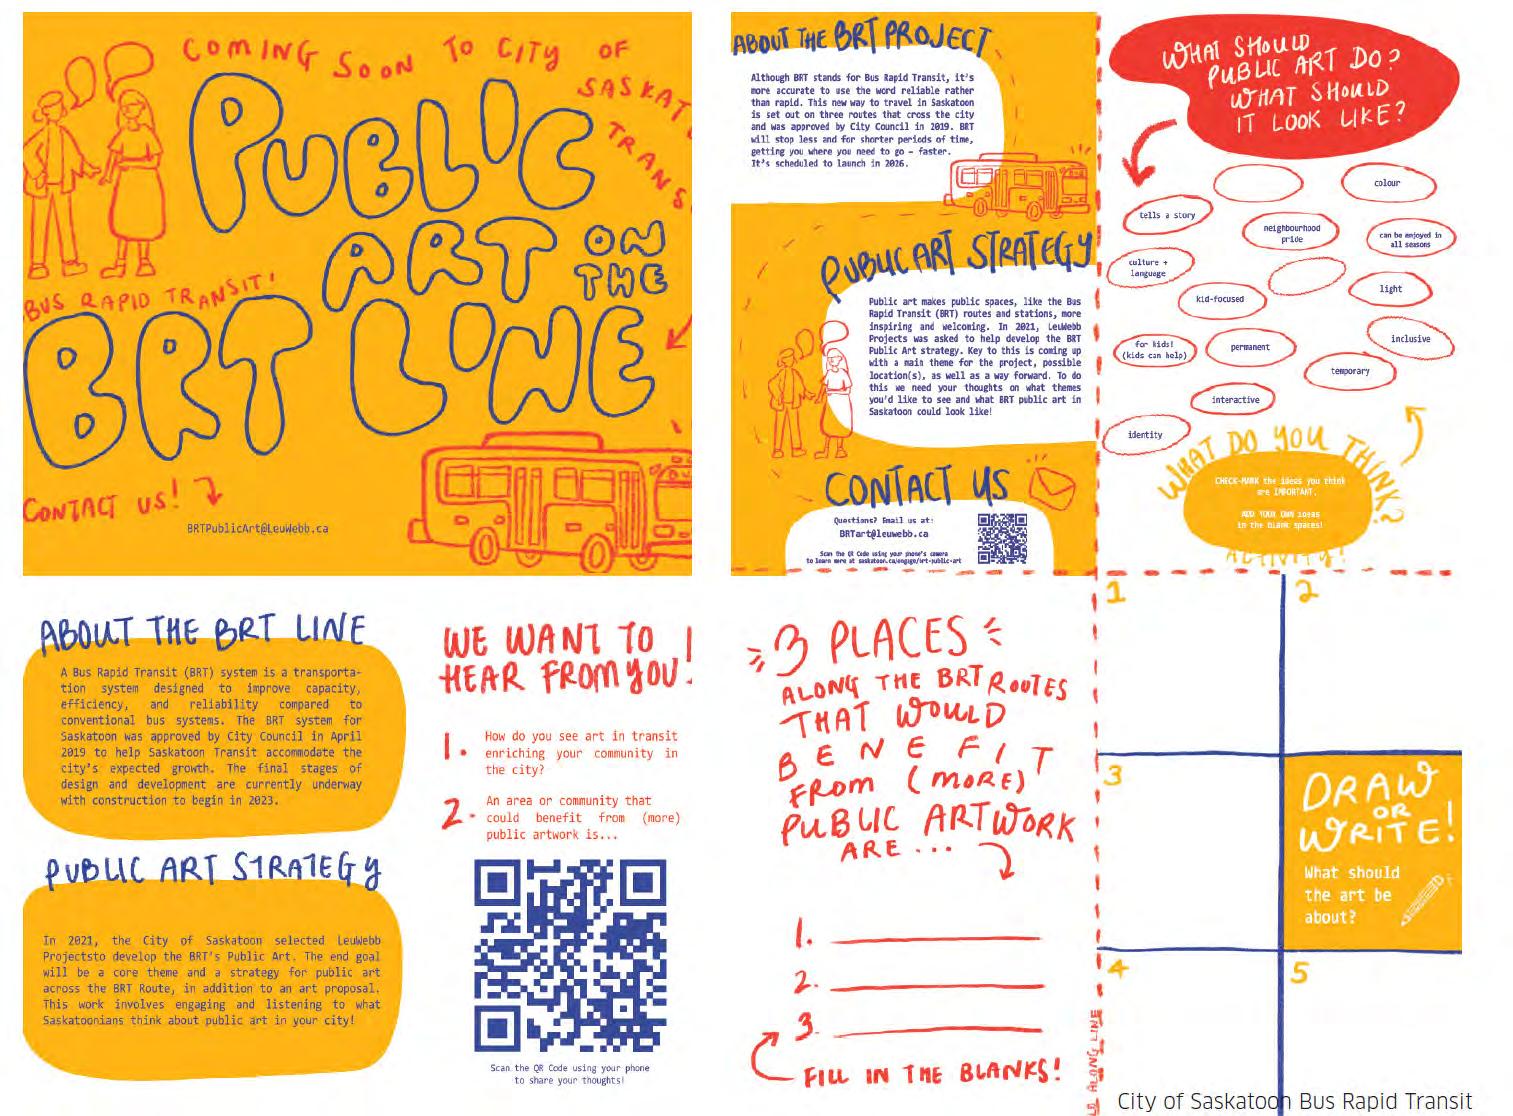 COMING SOON TO CITY OF
SASKAT
TRANS
PUBLIC
ART ON
THE
BUS RAPID TRANSIT!
BRT LINE
CONTACT US!
BRTPublicArt@LeuWebb.ca
ABOUT THE BRT PROJECT
Although BRT stands for Bus Rapid Transit, it's
more accurate to use the word reliable rather
than rapid. This new way to travel in Saskatoon
is set out on three routes that cross the city
and was approved by City Council in 2019. BRT
will stop less and for shorter periods of time,
getting you where you need to go – faster.
It's scheduled to launch in 2026.
PUBLIC ART STRATEGY
Public art makes public spaces, like the Bus
Rapid Transit (BRT) routes and stations, more
inspiring and welcoming. In 2021, LeuWebb
Projects was asked to help develop the BRT
Public Art strategy. Key to this is coming up
with a main theme for the project, possible
location(s), as well as a way forward. To do
this we need your thoughts on what themes
you'd like to see and what BRT public art in
Saskatoon could look like!
CONTACT US
Questions? Email us at:
BRTart@leuwebb.ca
Scan the QR Code using your phone's camera
to learn more at saskatoon.ca/engage/brt-public-art
WHAT SHOULD
PUBLIC ART DO?
WHAT SHOULD
IT LOOK LIKE?
colour
tells a story
neighbourhood
pride
can be enjoyed in
all seasons
culture +
language
light
kid-focused
inclusive
for kids!
(kids can help)
permanent
temporary
interactive
identity
WHAT DO YOU THINK?
CHECK-MARK the ideas you think
are IMPORTANT.
ADD YOUR OWN ideas
in the blank spaces!
ACTIVITY!
ABOUT THE BRT LINE
A Bus Rapid Transit (BRT) system is a transporta-
tion system designed to improve capacity,
efficiency, and reliability compared to
conventional bus systems. The BRT system for
Saskatoon was approved by City Council in April
2019 to help Saskatoon Transit accommodate the
city's expected growth. The final stages of
design and development are currently underway
with construction to begin in 2023.
PUBLIC ART STRATEGY
In 2021, the City of Saskatoon selected LeuWebb
Projectsto develop the BRT's Public Art. The end goal
will be a core theme and a strategy for public art
across the BRT Route, in addition to an art proposal.
This work involves engaging and listening to what
Saskatoonians think about public art in your city!
WE WANT TO
HEAR FROM YOU!
1. How do you see art in transit
enriching your community in
the city?
2. An area or community that
could benefit from (more)
public artwork is...
Scan the QR Code using your phone
to share your thoughts!
3 PLACES
ALONG THE BRT ROUTES
THAT WOULD
BENEFIT
FROM (MORE)
PUBLIC ARTWORK
ARE...
1.
2.
3.
FILL IN THE BLANKS!
LD ALONG LINE
1
2
3
DRAW
OR
WRITE!
What should
the art be
about?
4
5
City of Saskatoon Bus Rapid Transit